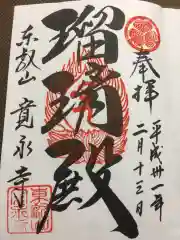 奉拝
平成卅一年
二月十三日
瑠璃殿
東叡山
寛永寺